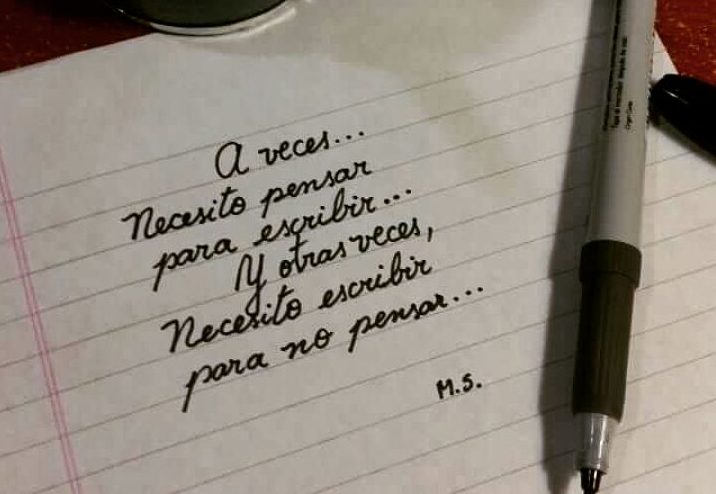 A veces...
Necesito pensar
para escribir...
Y otras veces,
Necesito escribir
para no pensar...
M.S.